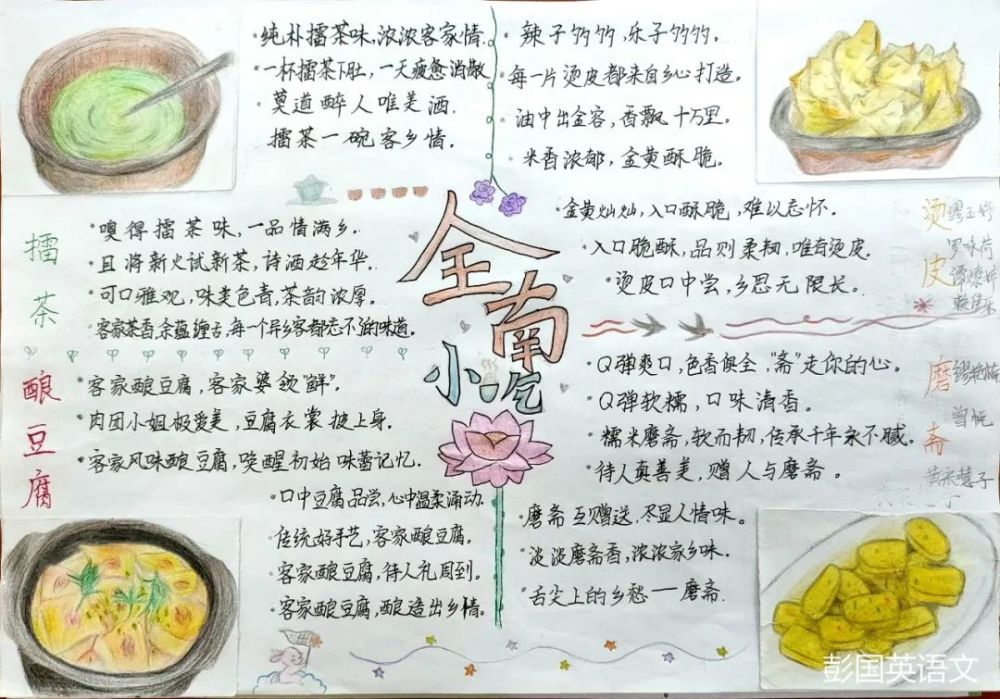 纯朴擂茶味,浓浓客家情.
一杯擂茶下肚,一天疲惫消散
莫道醉人唯美酒.
擂茶一碗客乡情.
辣子竹竹,乐子竹竹。
每一片烫皮都来自乡心打造。
油中出金容,香飘十万里。
米香浓郁,金黄酥脆。
擂茶
嗅得擂茶味,一品情满乡.
且将新火试新茶,诗酒趁年华.
可口雅观,味美色青,茶韵浓厚。
客家茶香余蕴缠古,每一个异乡客都忘不酒的味道。
全南
小吃
金黄灿灿,入口酥脆,难以忘怀.
入口脆酥,品则柔韧,唯有烫皮.
烫皮口中尝,乡思无限长。
烫皮
酿豆腐
客家酿豆腐,客家婆领"鲜"。
肉团小姐极爱美,豆腐衣裳披上身.
客家风味酿豆腐,唤醒初始味蕾记忆.
口中豆腐品尝,心中温柔涌动.
传统好手艺,客家酿豆腐.
客家酿豆腐,待人礼周到。
客家酿豆腐,酿造出乡情.
Q弹爽口,色香俱全,"斋"走你的心.
Q弹软糯,口味清香。
糯米磨斋,软而韧,传承千年永不腻.
待人真善美,赠人与磨斋。
磨斋
磨斋互赠送,尽显人情味。
淡淡磨斋香,浓浓家乡味.
舌尖上的乡愁——磨斋.
彭国英语文